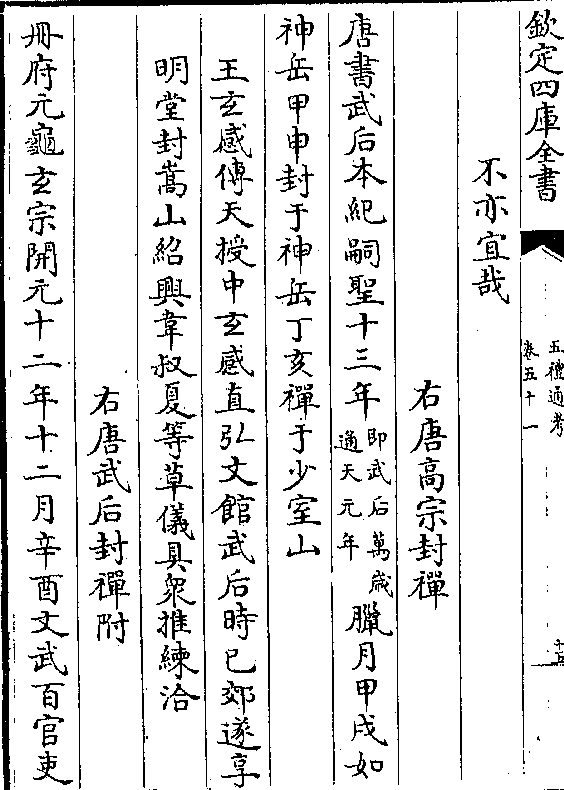 欽定四庫全書
五禮通考
卷五十一
不亦宜哉
右唐高宗封禪
唐書武后本紀嗣聖十三年即武后萬歲通天元年臘月甲戌如
神岳甲申封于神岳丁亥禪于少室山
王玄感傳天授中玄感直弘文館武后時已郊遂享
明堂封嵩山紹興韋叔夏等草儀具衆推練洽
右唐武后封禪附
冊府元龜玄宗開元十二年十二月辛酉文武百官吏